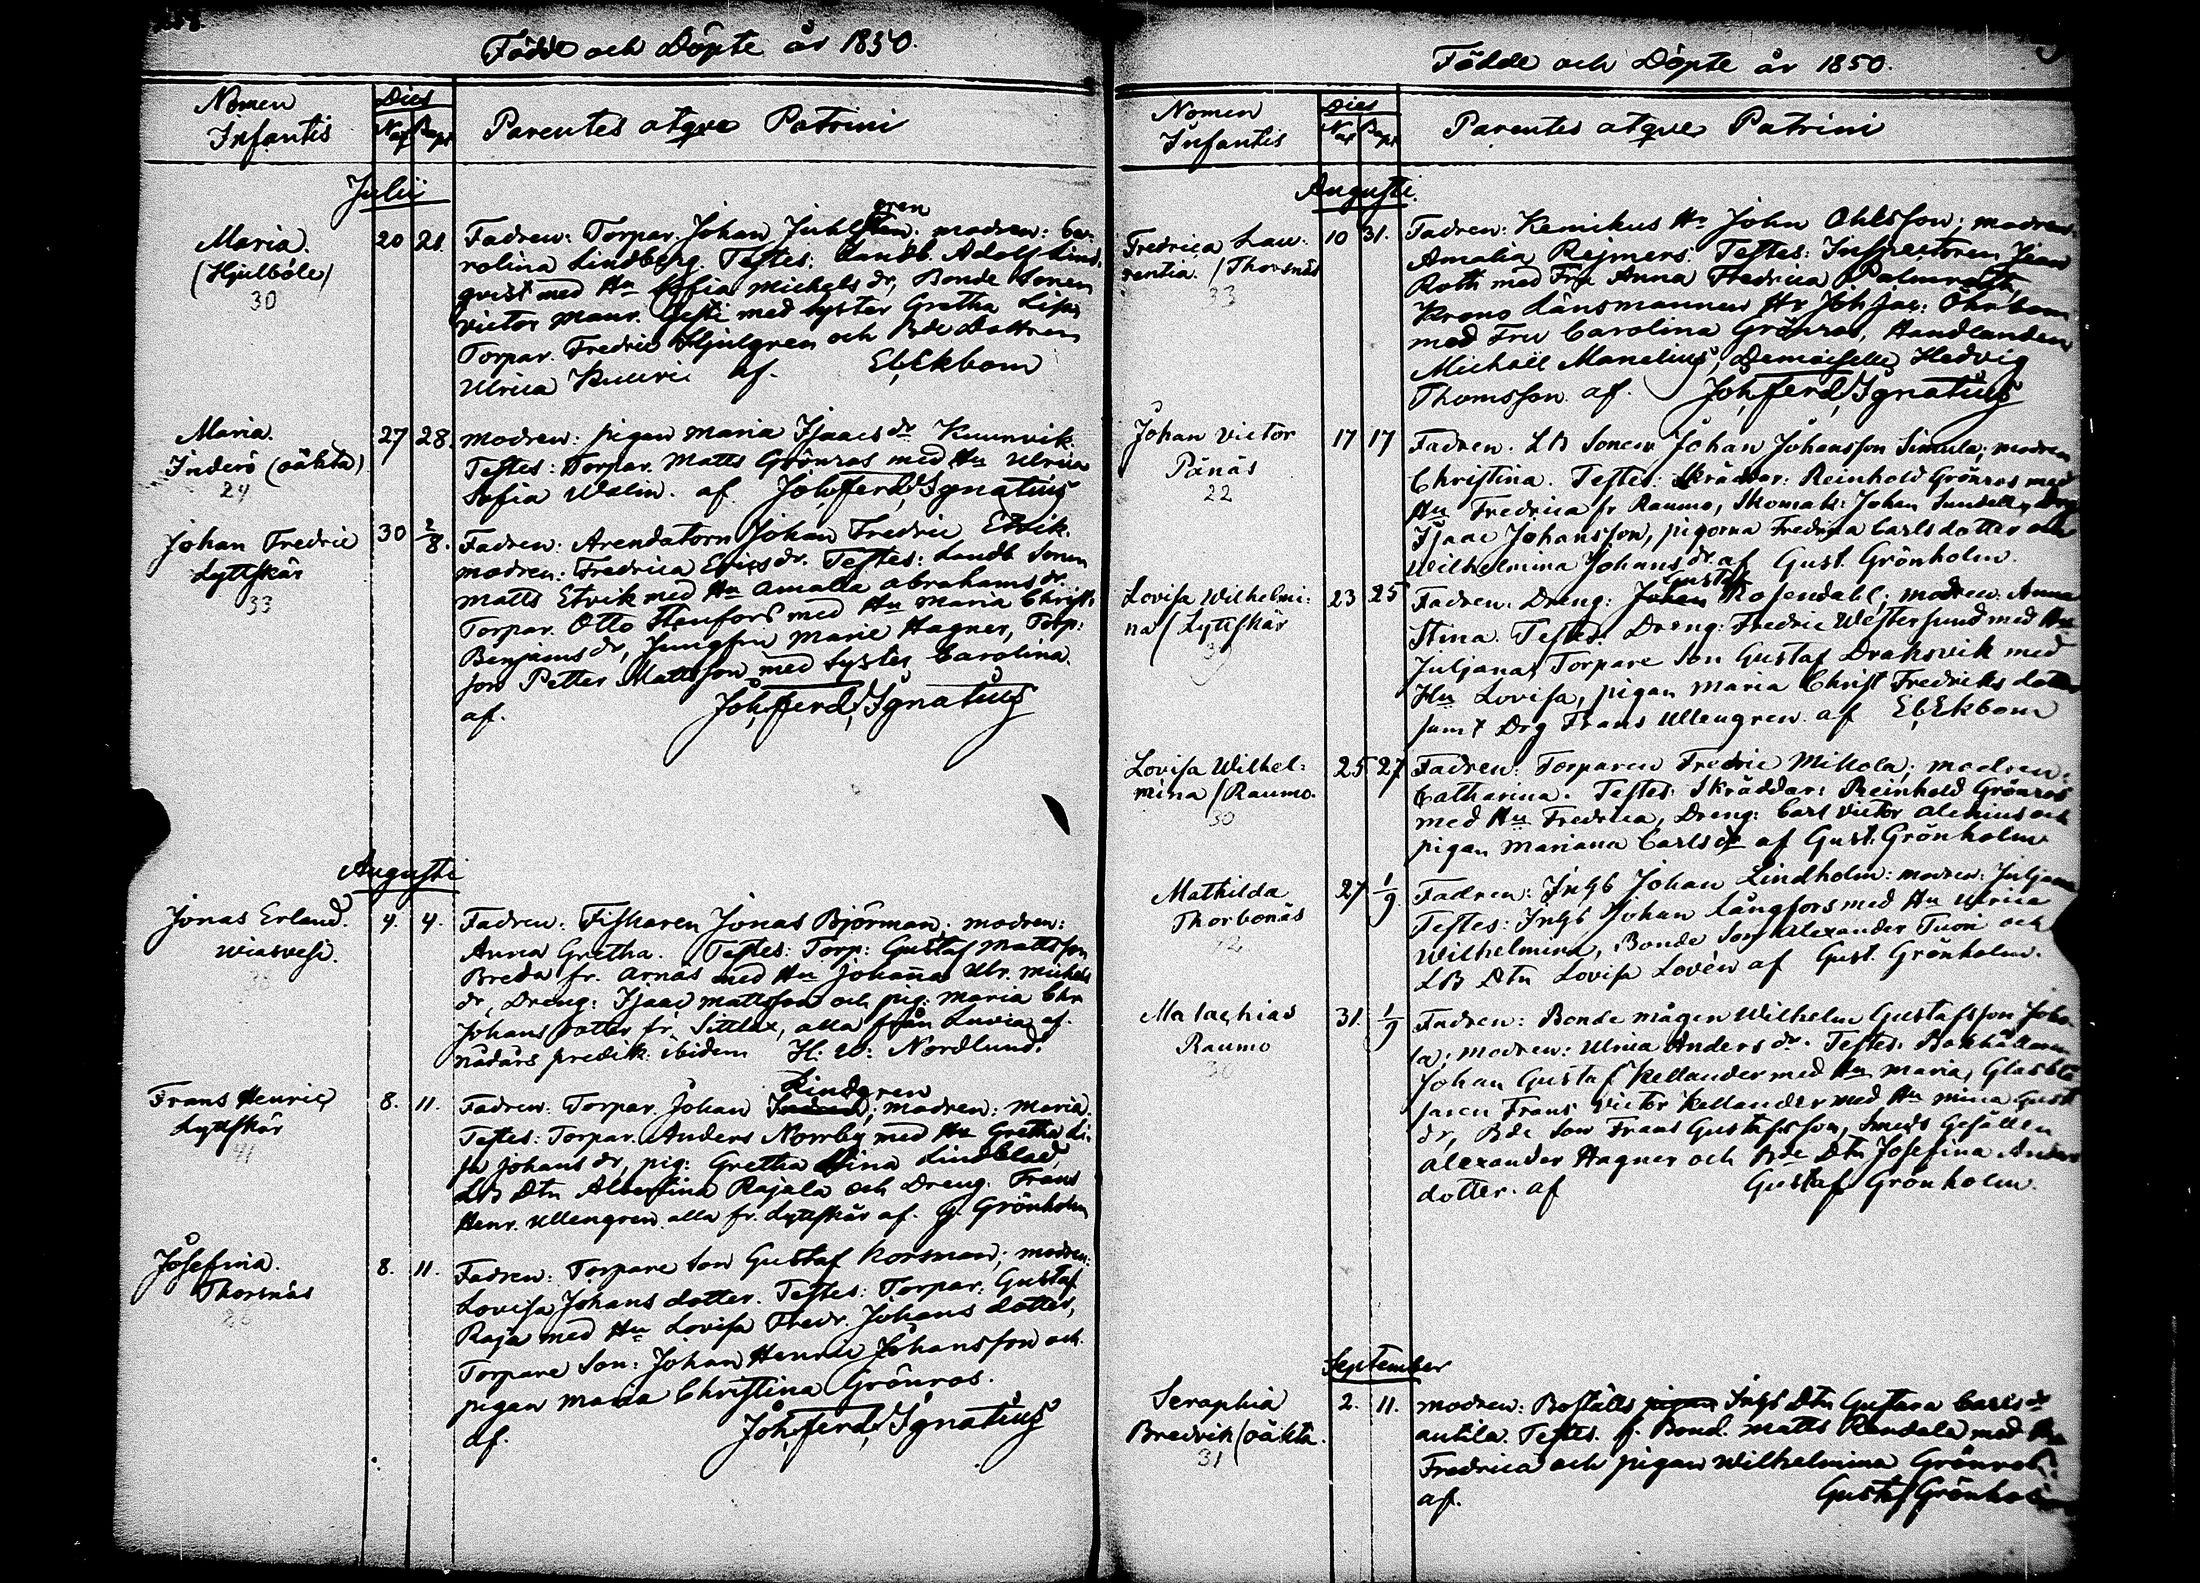 Födde och Döpte år 1850.
Nomen Infantis
Dies
Nat Bapt
Parentes atqve Patrini
Julii
Maria.
(Hjulböle)
30
20 21.
gren
Fadren: Torpar. Johan Juhlsten: modren: Ca-
rolina Lindberg. Testes: Landb. Adolf Lind-
qvist med Hu Sofia Michels dr, Bonde Sonen
Victor Maur. med Syster Gretha Lisa
Torpar. Fredric Hjulgren och Bde Dottren
Ulrica Kuuri af. E. Ekbom
Maria.
Inderö (oäkta)
24
27 28.
modren: pigan Maria Isaacs dr Kuurvik.
Testes: Torpar. Matts Grönroos med Hu Ulrica
Sofia Walin. af Joh. Ferd. Ignatius
Johan Fredric
Lyttskär
33
30 2/8.
Fadren: Arendatorn Johan Fredric Etvik.
modren: Fredrica Erics dr. Testes: Landb Sonen
Matts Etvik med Hu Amalia Abrahams dr.
Torpar. Otto Stenfors med Hu Maria Christ.
Benjamins dr, Jungfru Marie Hagner, Torp:
son Petter Mattsson med Syster Carolina.
af. Joh. Ferd. Ignatius
Augusti
Jonas Erland.
Wiasvesi.
4. 4.
Fadren: Fiskaren Jonas Björman: modren:
Anna Gretha. Testes: Torp: Gustaf Mattsson
Breda fr. Arnäs med Hu Johanna Ulr. Michels
dr, Dreng: Isaac Mattsson och pig: Maria Chr
Johans dotter fr. Sittlax, alla från Luvia af.
nådårs predik: ibidem H: W: Nordlund.
Frans Henric
Lyttskär
41
8. 11.
Lindgren
Fadren: Torpar. Johan; modren: Maria.
Testes: Torpar. Anders Norrby med Hu Gretha Li-
sa Johans dr, pig: Gretha Stina Lindblad,
LB Dtn Albertina Rajala och Dreng: Frans
Henr. Ullengren alla fr. Lyttskär af. G. Grönholm
Josefina.
Thorsnäs
8. 11.
Fadren: Torpare Son Gustaf Korsman; modren:
Lovisa Johans dotter. Testes: Torpar: Gustaf
Raja med Hu Lovisa Fredr. Johans dotter,
Torpare Son: Johan Henric Johansson och
pigan Maria Christina Grönroos.
af. Joh. Ferd. Ignatius
Födde och Döpte år 1850.
Nomen Infantis
Dies
Nat Bapt
Parentes atqve Patrini
Augusti.
Fredrica Lau-
rentia. / Thorsnäs
33
10 31.
Fadren: Kemikus Hr John Ohlsson; modren:
Amalia Rejmers. Testes: Inspectoren Jean
Roth med Fru Anna Fredrica Palmroth,
Krono Länsmannen Hr Joh Jac: Öhrbom
med Fru Carolina Grönroos, Handlanden
Michaël Manelius, Demoiselle Hedvig
Thomsson af. Joh. Ferd. Ignatius
Johan Victor
Pänäs
22
17 17
Fadren. LB Sonen Johan Johansson Simula; modren
Christina. Testes: Skräddar: Reinhold Grönroos med
Hu Fredrica fr Raumo, Skomak: Johan Sundell, Drg
Isaac Johansson, pigorna Fredrica Carlsdotter och
Wilhelmina Johans dr af Gust. Grönholm.
Lovisa Wilhelmi-
na / Lyttskär
23 25
Gustaf
Fadren: Dreng: Johan Rosendahl; modren: Anna
Stina. Testes: Dreng: Fredric Westersund med Hu
Juljana, Torpare Son Gustaf Draksvik med
Hu Lovisa, pigan Maria Christ Fredriks dotter
samt Drg Frans Ullengren. af E. Ekbom
Lovisa Wilhel-
mina / Raumo.
30
25 27
Fadren: Torparen Fredric Mikola; modren:
Catharina. Testes: Skräddar: Reinhold Grönroos
med Hu Fredrica, Dreng: Carl Victor Alenius och
pigan Mariana Carls dr af Gust. Grönholm
Mathilda
Thorbonäs
27 1/9
Fadren: Inhb Johan Lindholm: modren: Juljana
Testes: Inhb Johan Långfors med Hu Ulrica
Wilhelmina, Bonde Son Alexander Tuori och
LB Dtn Lovisa Lovén af Gust. Grönholm.
Malachias
Raumo
31. 1/9
Fadren: Bonde mågen Wilhelm Gustafsson Joho-
la; modren: Ulrica Anders dr. Testes: Bokhållaren
Johan Gustaf Kellander med Hu Maria, Glasblå-
saren Frans Victor Kellander med Hu Mina Gust
dr, Bde Son Frans Gustafsson, Smeds Gesällen
Alexander Hagner och Bde Dtn Josefina Anders
dotter. af Gustaf Grönholm.
September
Seraphia
Bredvik (oäkta.
31
2. 11.
modren: Boställs pigan Inhb Dtn Gustava Carls dr
Antila. Testes. f. Bond. Matts Rendala med Hu
Fredrica och pigan Wilhelmina Grönroos.
af. Gustaf Grönholm